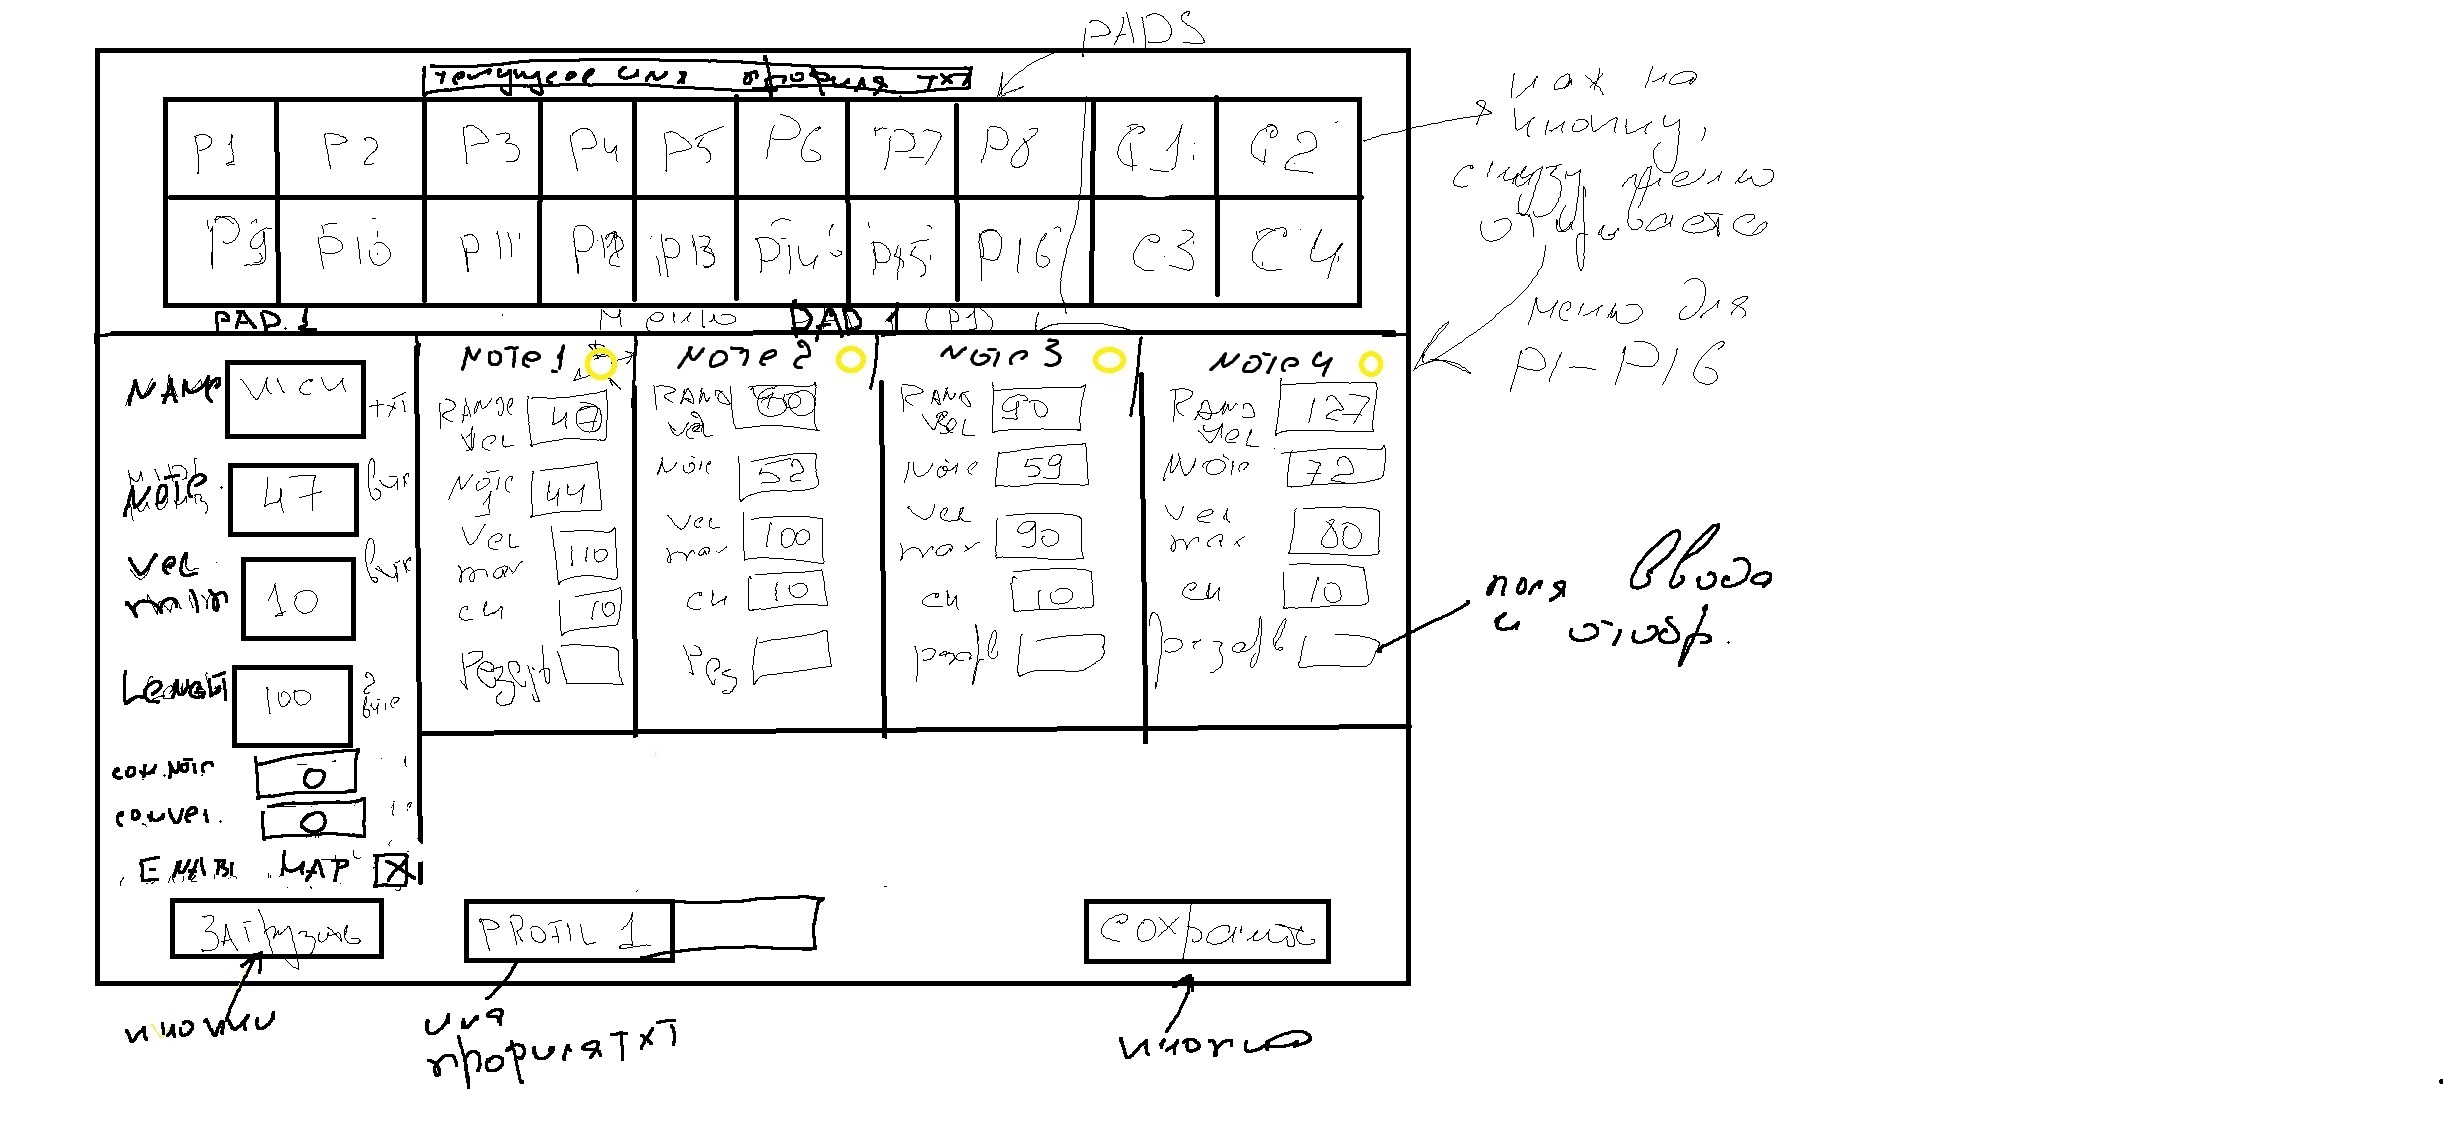 PADS
текущее имя профиля TXT
P1 P2 P3 P4 P5 P6 P7 P8 C1 C2
P9 P10 P11 P12 P13 P14 P15 P16 C3 C4
наж на
кнопку,
снизу меню
открывается
меню для
P1-P16
PAD.1 Меню PAD 1 (P1)
NOTE 1
NOTE 2
NOTE 3
NOTE 4
NAME
TXT
NOTE 47
VEL
min 10
LENGHT 100
2
CON.NOTE 0
CON VEL. 0
ENABL MAP X
RANGE
VEL 40
NOTE
1 44
VEL
max 110
CH 10
Резерв
RANG
VEL 80
NOTE 52
VEL
max 100
CH 10
Рез
RANG
VEL 90
NOTE 59
VEL
max 90
CH 10
резерв
RANG
VEL 127
NOTE 72
VEL
max 80
CH 10
резерв
поля ввода
и отобр.
Загрузить
PROFIL 1
Сохранить
кнопки
имя
профиля TXT
кнопка